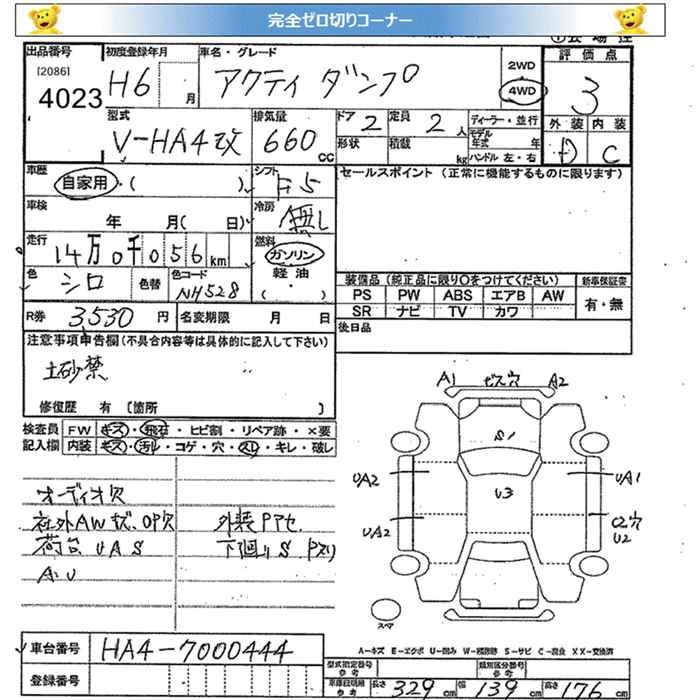 完全ゼロ切りコーナー
出品番号 初度登録年月 車名・グレード 評価点
[2086] 4023 H6 月 アクティ ダンプ 2WD 4WD 3
型式 排気量 ドア 定員 ディーラー・並行 外装 内装
V-HA4改 660 CC 2 2 人 モデル年式 年 D C
形状 積載 kg ハンドル 左・右
車歴 自家用・( ) シフト F5 セールスポイント (正常に機能するものに限ります)
車検 年 月( 日) 冷房 無し
走行 14万0千056km 燃料 ガソリン
軽油・( )
色 シロ 色替 色コード NH528
装備品 (純正品に限り○をつけてください) 新車保証書
PS PW ABS エアB AW 有・無
SR ナビ TV カワ
R券 3,530 円 名変期限 月 日 後日品
注意事項申告欄(不具合内容等は具体的に記入して下さい)
土砂禁
修復歴 有 [箇所 ]
検査員 FW キズ・飛石・ヒビ割・リペア跡・×要
記入欄 内装 キズ・汚れ・コゲ・穴・スレ・キレ・破レ
オーディオ欠
社外AWキズ、OP欠 外装Pアセ
荷台UAS 下回りS
A・U
A1 ビス穴 A2
S1
UA2 U3 UA1
UA2 C2穴
U2
スマ
A-キズ E-エクボ U-凹み W-補修跡 S-サビ C-腐食 XX-交換済
車台番号 HA4-7000444
登録番号
型式指定番号 参考 類別区分番号 参考
車庫証明用 参考 長さ 329 cm 幅 139 cm 高さ 176 cm